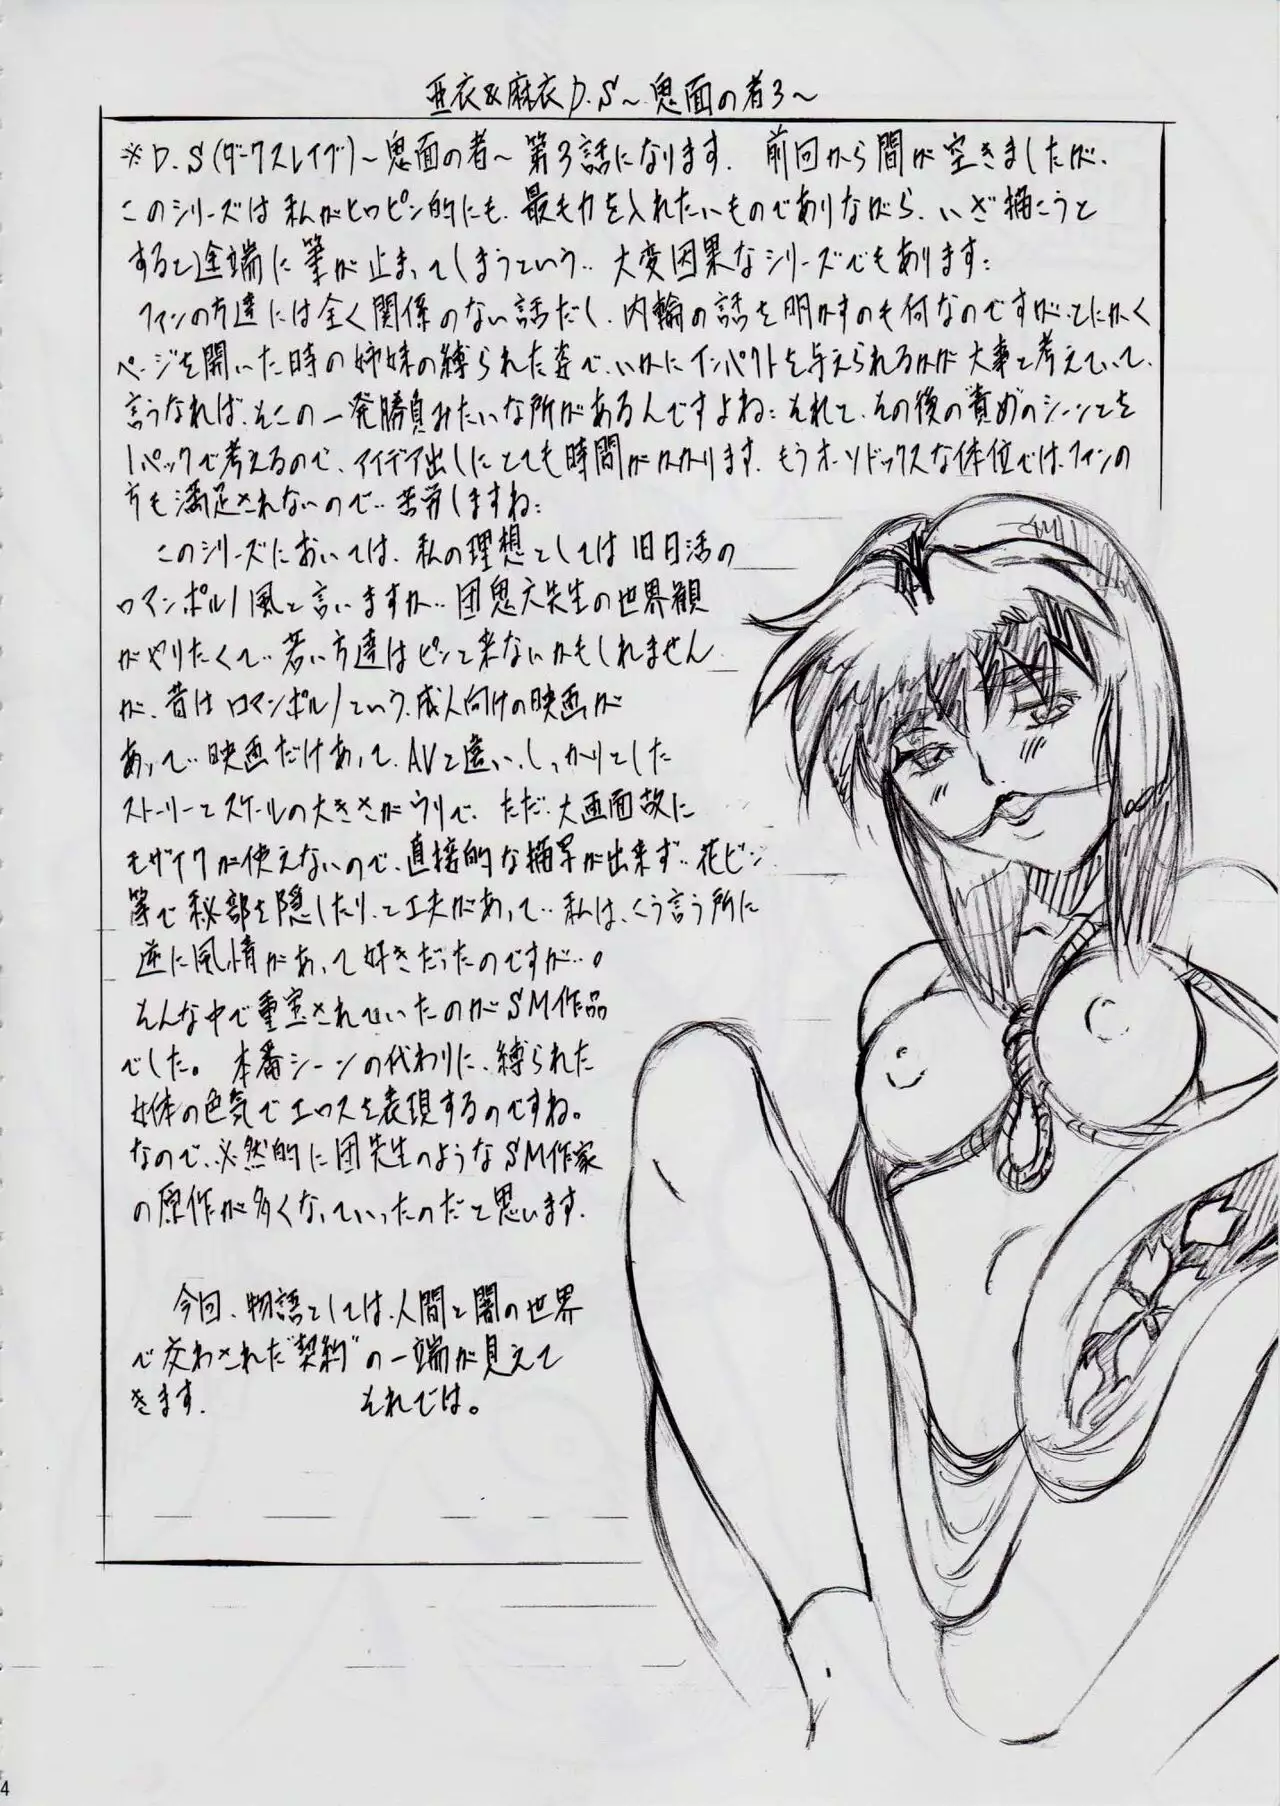 亜衣&麻衣D.S～鬼面の者3～
※D.S(ダークスレイブ)～鬼面の者～第3話になります. 前回から間が空きましたが、
このシリーズは私がヒロピン的にも、最も力を入れたいものでありながら、いざ描こうと
すると途端に筆が止まってしまうという‥大変因果なシリーズでもあります:
ファンの方達には全く関係のない話だし、内輪の話を明かすのも何なのですが、とにかく
ページを開いた時の姉妹の縛られた姿で、いかにインパクトを与えられるかが大事と考えていて、
言うなれば、そこの一発勝負みたいな所があるんですよね:それと、その後の"責め"のシーンとを
1パックで考えるので、アイデア出しにとても時間がかかります. もうオーソドックスな体位では、ファンの
方も満足されないので‥苦労しますね:
このシリーズにおいては、私の理想としては旧日活の
ロマンポルノ風と言いますか‥団鬼六先生の世界観
がやりたくて‥若い方達はピンと来ないかもしれません
が、昔はロマンポルノという、成人向けの映画が
あって‥映画だけあって、AVと違い、しっかりとした
ストーリーとスケールの大きさがウリで、ただ‥大画面故に
モザイクが使えないので、直接的な描写が出来ず‥花ビン
等で秘部を隠したり、と工夫があって‥私は、こう言う所に
逆に風情があって好きだったのですが‥。
そんな中で重宝されていたのがSM作品
でした。本番シーンの代わりに、縛られた
女体の色気でエロスを表現するのですね。
なので、必然的に団先生のようなSM作家
の原作が多くなっていったのだと思います.
今回、物語としては、人間と闇の世界
で交わされた"契約"の一端が見えて
きます. それでは。
4